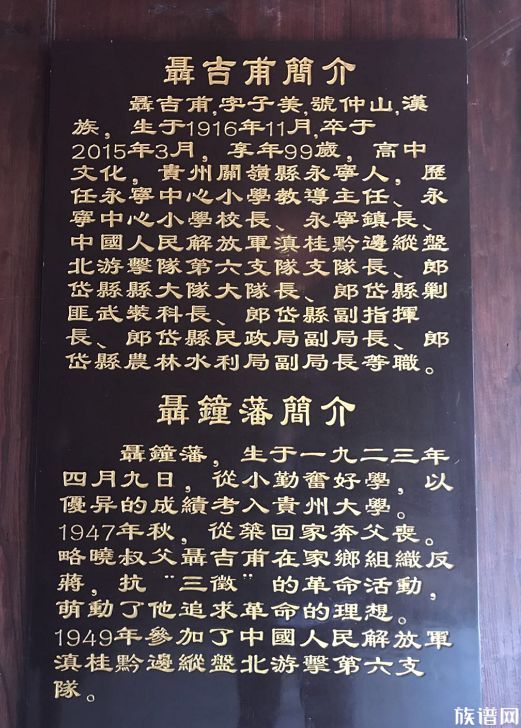 聶吉甫簡介
聶吉甫,字子美,號仲山,漢
族，生于1916年11月,卒于
2015年3月，享年99歲，高中
文化，貴州關嶺縣永寧人，歷
任永寧中心小學教導主任、永
寧中心小學校長、永寧鎮長、
中國人民解放軍滇桂黔邊縱盤
北游擊隊第六支隊支隊長、郎
岱縣縣大隊大隊長、郎岱縣剿
匪武裝科長、郎岱縣副指揮
長、郎岱縣民政局副局長、郎
岱縣農林水利局副局長等職。
聶鐘藩簡介
聶鐘藩，生于一九二三年
四月九日，從小勤奮好學，以
優异的成績考入貴州大學。
1947年秋，從築回家奔父喪。
略曉叔父聶吉甫在家鄉組織反
蔣，抗“三徵”的革命活動，
萌動了他追求革命的理想。
1949年參加了中國人民解放軍
滇桂黔邊縱盤北游擊第六支
隊。
族谱网